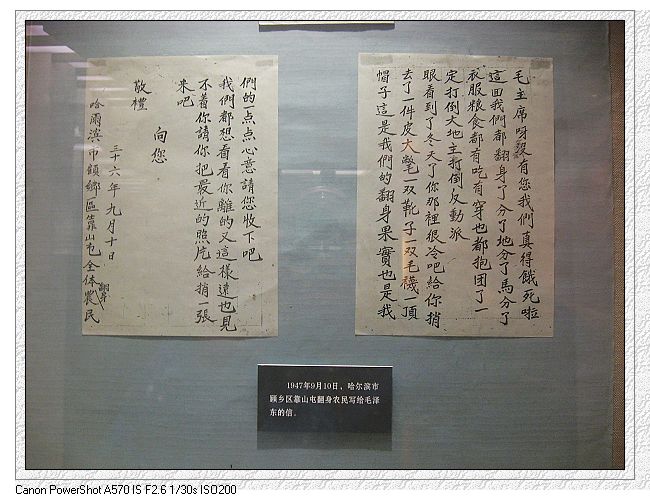 毛主席呀殺有您我們真得餓死啦
這回我們都翻身了分了地分了馬分了
衣服粮食都有吃有穿也都抱团了一
定打倒大地主打倒反動派
眼看到了冬天了你那裡很冷吧給你捎
去了一件皮大氅一双靴子一双毛襪一頂
帽子這是我們的翻身果實也是我
們的一点点心意請您收下吧
我們都想看看你離的又這樣遠也見
不着你請你把最近的照片給捎一張
來吧
向您
敬禮
三十六年九月十日
哈爾滨市顧鄉區靠山屯全体翻身農民
1947年9月10日，哈尔滨市
顾乡区靠山屯翻身农民写给毛泽
东的信。
Canon PowerShot A570 IS F2.6 1/30s ISO200